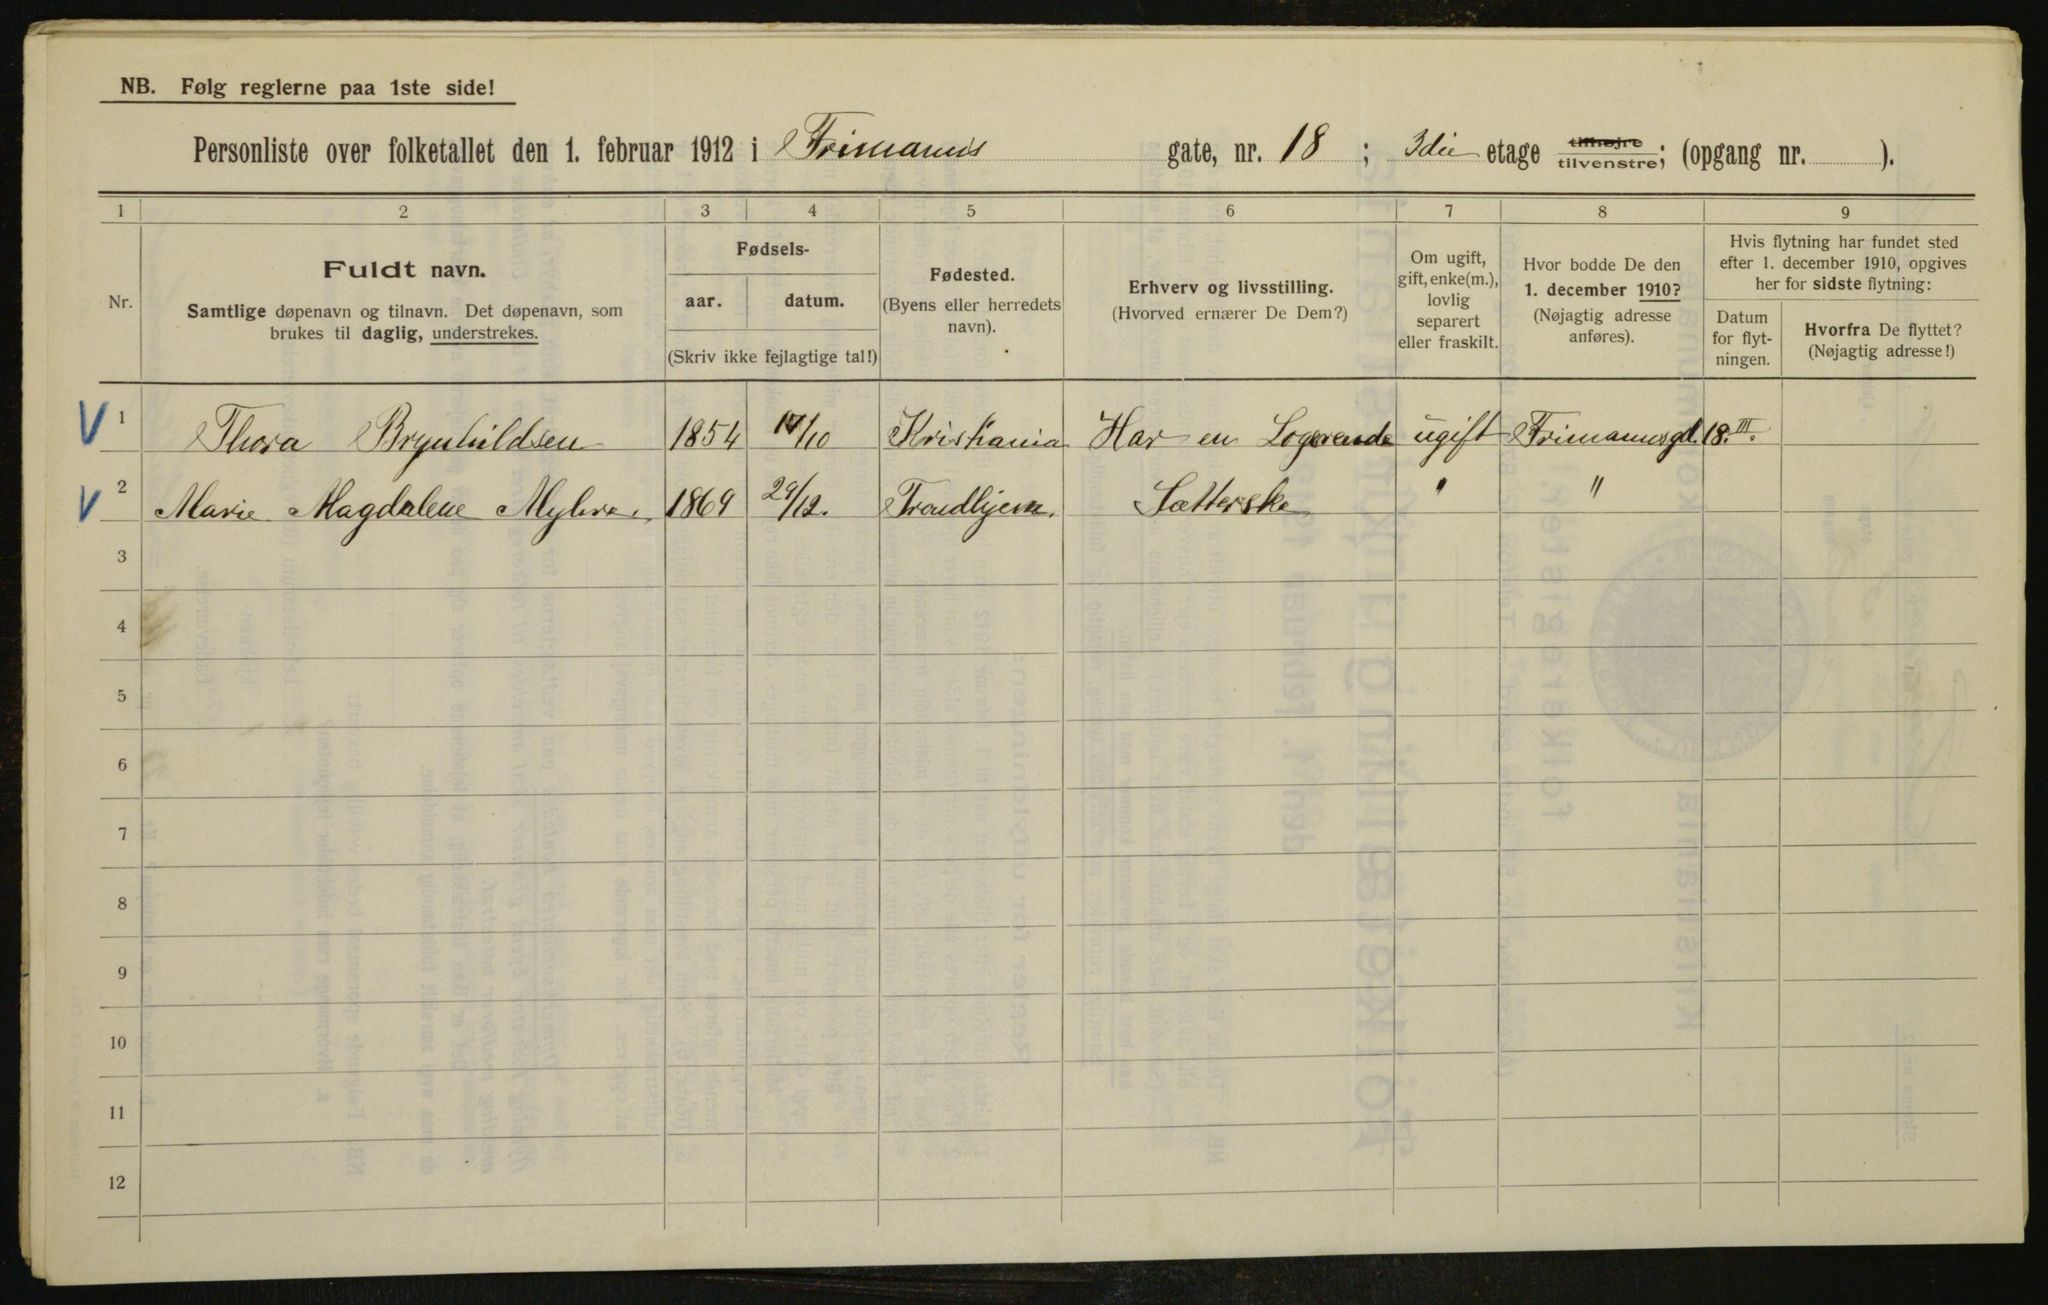 NB. Følg reglerne paa 1ste side!
Personliste over folketallet den 1. februar 1912 i Frimanns gate, nr. 18 ; 3die etage tilhøjre tilvenstre; (opgang nr. ).
1 2 3 4 5 6 7 8 9
Nr.
Fuldt navn.
Samtlige døpenavn og tilnavn. Det døpenavn, som
brukes til daglig, understrekes.
Fødsels-
aar. datum.
(Skriv ikke fejlagtige tal!)
Fødested.
(Byens eller herredets
navn).
Erhverv og livsstilling.
(Hvorved ernærer De Dem?)
Om ugift,
gift, enke(m.),
lovlig
separert
eller fraskilt.
Hvor bodde De den
1. december 1910?
(Nøjagtig adresse
anføres).
Hvis flytning har fundet sted
efter 1. december 1910, opgives
her for sidste flytning:
Datum
for flyt-
ningen.
Hvorfra De flyttet?
(Nøjagtig adresse!)
V 1 Thora Brynhildsen 1854 14/10 Kristiania Har en Logerende ugift Frimannsgd. 18. III.
V 2 Marie Magdalene Myhre 1869 29/12. Trondhjem. Sætterske " "
3
4
5
6
7
8
9
10
11
12